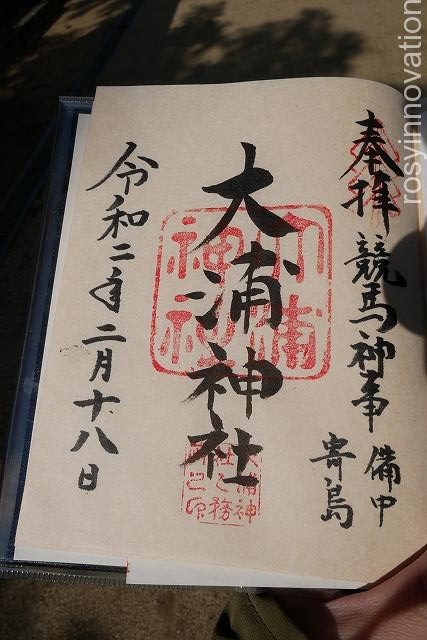 奉拝 競馬神事 備中
寄島
大浦神社
大浦
神社
大浦神
社之務
所之印
令和二年二月十八日
rosyinnovation